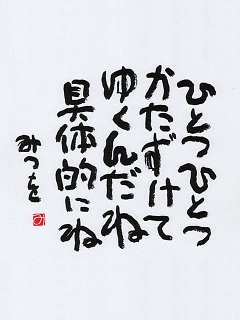 ひとつひとつ
かたずけて
ゆくんだね
具体的にね
みつを